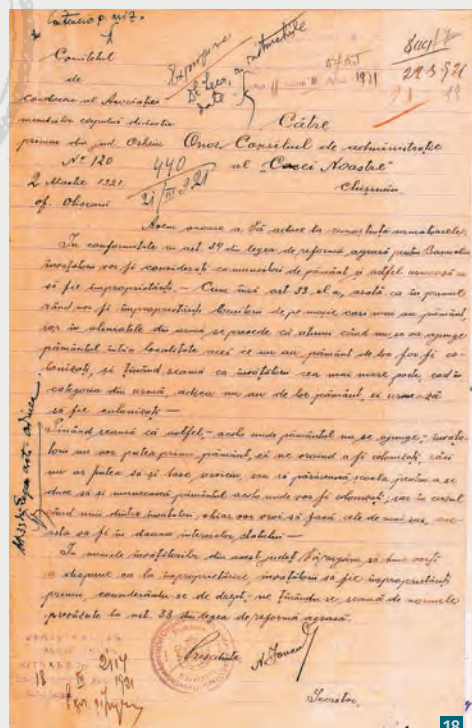 Comitetul
de
conducere al Asociației
membrilor corpului didactic
primar din jud. Orhein
Nº 120
2 Martie 1921
of. Chișcani
Expropriere
440
21/III 921
1921
22.3.921
Către
Onor Consiliul de administrație
al "Casei Noastre"
Chișinău
Avem onoare a Vă aduce la cunoștință următoarele:
In conformitate cu art. 34 din legea de reformă agrară pentru Basarabia
învățătorii vor fi considerați ca muncitori de pământ și astfel urmează
să fie împroprietăriți. – Cum însă art. 33 al. a, arată ca în primul
rând vor fi împroprietăriți locuitorii de pe moșie cari mai au pământ,
iar în alineatele din urmă se prevede că atunci când nu se va ajunge
pământul într'o localitate acei ce nu au pământ de loc vor fi co-
lonizați, și ținând seamă ca învățătorii cea mai mare parte, cad în
categoria din urmă, adică nu au de loc pământ, ei urmează
să fie colonizați –
Ținând seamă că astfel, – acolo unde pământul nu se ajunge, – învăță-
torii nu vor putea primi pământ, ei ne voind a fi colonizați, căci
nu ar putea să-și lase serviciu, sau să părăsească școala pentru a se
duce să-și muncească pământul acolo unde vor fi colonizați, iar în cazul
când unii dintre învățători, chiar vor voi să facă cele de mai sus, ac-
easta va fi în dauna intereselor statului –
In numele învățătorilor din acest județ Vă rugăm să bine voiți
a dispune ca la împroprietărire învățătorii să fie împroprietăriți
primii, considerându-se de drept, ne ținându-se seamă de normele
prevăzute la art. 33 din legea de reformă agrară.
Președinte,
Secretar,
2114
18 III 1921
18